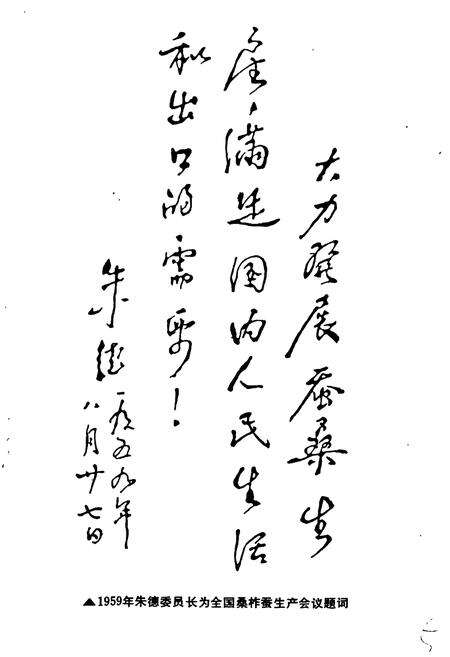 大力發展蚕桑生
産，滿足国内人民生活
和出口的需要！
朱德
一九五九年
八月廿七日
▲1959年朱德委员长为全国桑柞蚕生产会议题词